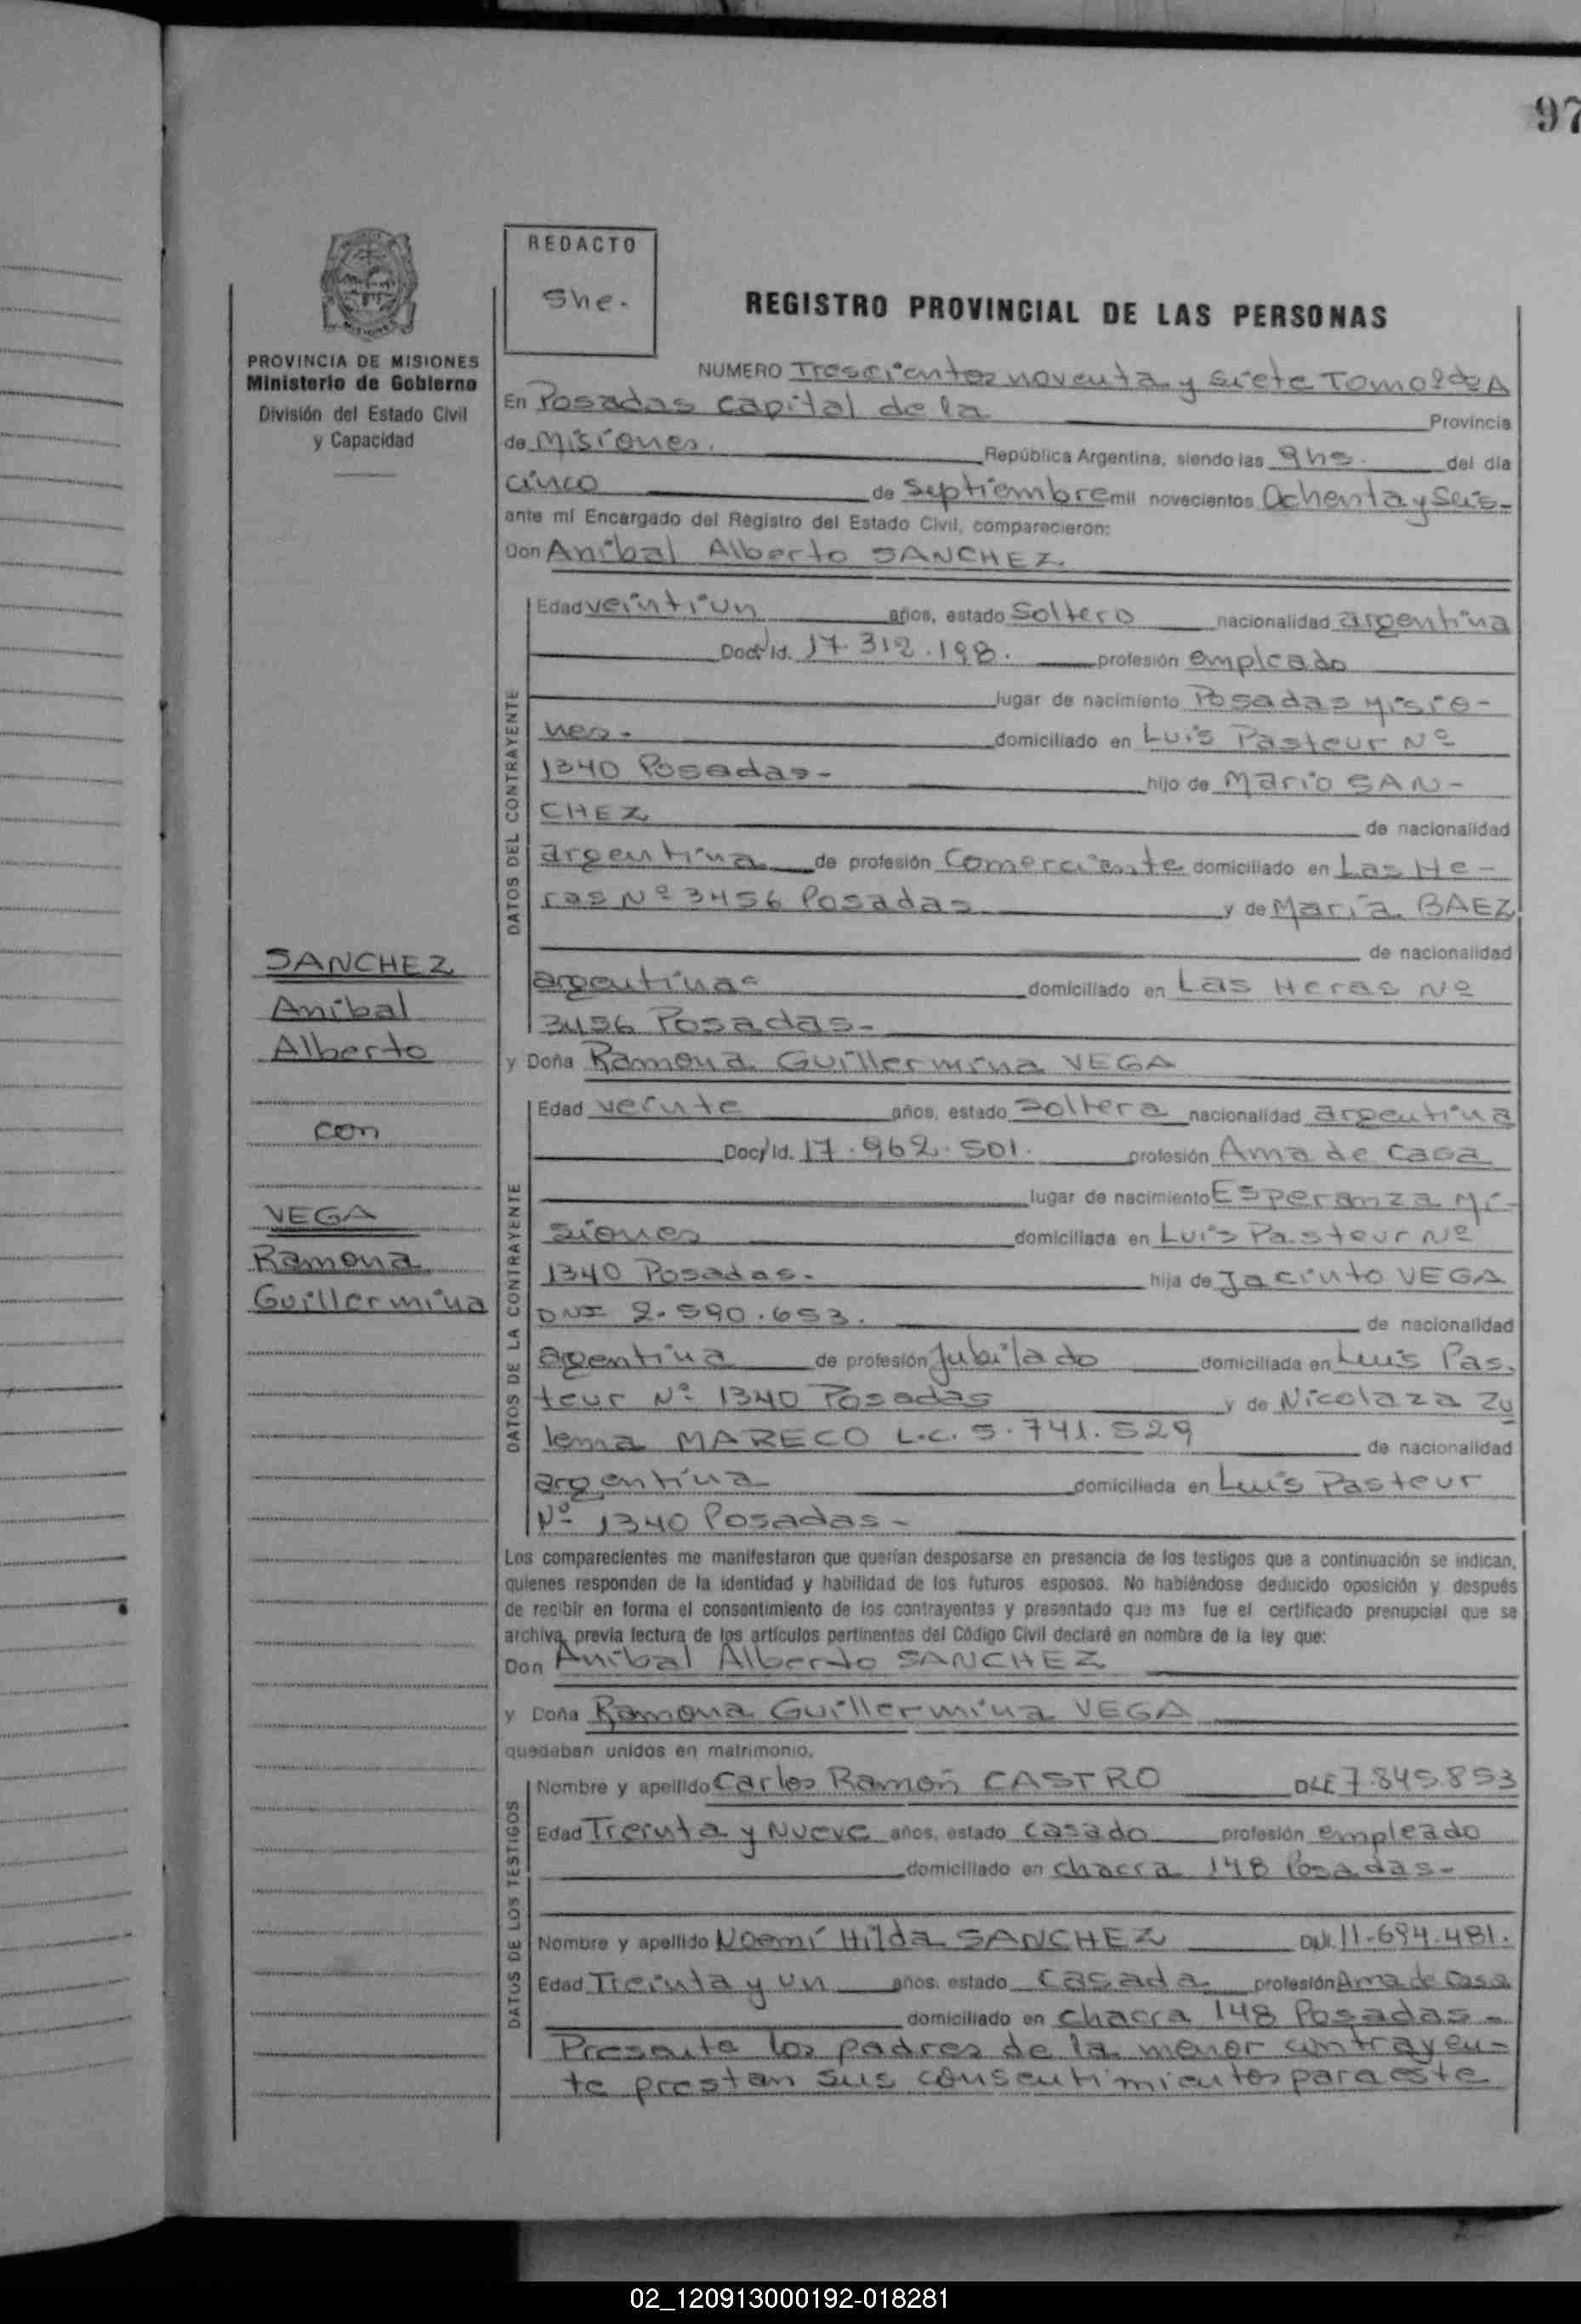 97
REDACTO
She.
REGISTRO PROVINCIAL DE LAS PERSONAS
PROVINCIA DE MISIONES
Ministerio de Gobierno
División del Estado Civil
y Capacidad
NUMERO Trescientos noventa y siete Tomo 2do A
En Posadas capital de la Provincia
de Misiones. República Argentina, siendo las 9 hs. del día
cinco de Septiembre mil novecientos Ochenta y Seis-
ante mí Encargado del Registro del Estado Civil, comparecieron:
Don Anibal Alberto SANCHEZ.
DATOS DEL CONTRAYENTE
Edad veintiun años, estado Soltero nacionalidad argentina
Doc/Id. 17.312.198. profesión empleado
lugar de nacimiento Posadas Misio-
nes- domiciliado en Luis Pasteur Nº
1340 Posadas- hijo de Mario SAN-
CHEZ de nacionalidad
argentina de profesión Comerciante domiciliado en Las He-
ras Nº 3456 Posadas y de María BAEZ
de nacionalidad
argentina- domiciliado en Las Heras Nº
3456 Posadas-
y Doña Ramona Guillermina VEGA
DATOS DE LA CONTRAYENTE
Edad veinte años, estado soltera nacionalidad argentina
Doc/Id. 17.962.501. profesión Ama de casa
lugar de nacimiento Esperanza Mi-
siones domiciliada en Luis Pasteur Nº
1340 Posadas. hija de Jacinto VEGA
DNI 2.590.653. de nacionalidad
agentina de profesión Jubilado domiciliada en Luis Pas.
teur Nº 1340 Posadas y de Nicolaza Zu
lema MARECO L.C. 5.741.529 de nacionalidad
argentina domiciliada en Luis Pasteur
Nº 1340 Posadas-
SANCHEZ
Anibal
Alberto
con
VEGA
Ramona
Guillermina
Los comparecientes me manifestaron que querían desposarse en presencia de los testigos que a continuación se indican,
quienes responden de la identidad y habilidad de los futuros esposos. No habiéndose deducido oposición y después
de recibir en forma el consentimiento de los contrayentes y presentado que me fue el certificado prenupcial que se
archiva, previa lectura de los artículos pertinentes del Código Civil declaré en nombre de la ley que:
Don Anibal Alberto SANCHEZ
y Doña Ramona Guillermina VEGA
quedaban unidos en matrimonio.
DATOS DE LOS TESTIGOS
Nombre y apellido Carlos Ramón CASTRO DLE 7.845.853
Edad Treinta y Nueve años, estado casado profesión empleado
domiciliado en chacra 148 Posadas-
Nombre y apellido Noemí Hilda SANCHEZ DNI. 11.694.481.
Edad Treinta y un años, estado casada profesión Ama de Casa
domiciliado en chacra 148 Posadas-
Presente los padres de la menor contrayen-
te prestan sus consentimientos para este
02_120913000192-018281